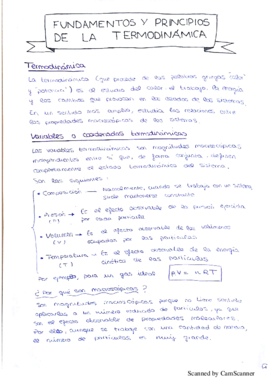 FUNDAMENTOS Y PRINCIPIOS
DE LA TERMODINÁMICA
Termodinámica
La termodinámica (que procede de dos palabras griegas "calor"
y "potencia") es el estudio del calor, el trabajo, la energía
y los cambios que provocan en los estados de los sistemas.
En un sentido más amplio, estudia las relaciones entre
las propiedades macroscópicas de los sistemas.
Variables o coordenadas termodinámicas
Las variables termodinámicas son magnitudes macroscópicas
independientes entre sí que, de forma conjunta, definen
completamente el estado termodinámico del sistema.
Son las siguientes:
• Composición → normalmente, cuando se trabaja en un sistema,
suele mantenerse constante
• Presión → Es el efecto observable de la fuerza ejercida
por cada partícula
• Volumen → Es el efecto observable de los volúmenes
(V) ocupados por las partículas
• Temperatura → Es el efecto observable de la energía
(T) cinética de las partículas
Por ejemplo, para un gas ideal PV = nRT
¿Por qué son macroscópicas?
Son magnitudes macroscópicas porque no tiene sentido
aplicarlas a un número reducido de partículas, ya que
son el efecto observable de propiedades moleculares.
Por ello, aunque se trabaje con una cantidad de materia,
el número de partículas es muy grande.
Scanned by CamScanner